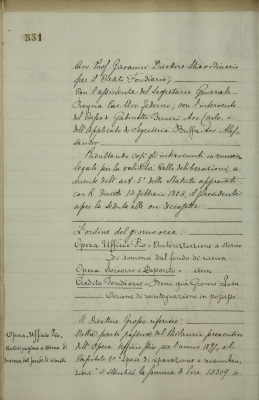 551
Avv. Prof. Giovanni Direttore Straordinario
per il Credito Fondiario;
Con l'assistenza del Segretario Generale
Cav. Avv. Federico; con l'intervento
del Capo di Gabinetto Avv. Carlo, e
dell'Applicato di Segreteria Avv. Ales-
sandro
Risultando così gli intervenuti in numero
legale per la validità delle deliberazioni, a
mente dell'art. 5° dello Statuto approvato
con R. Decreto 13 Febbraio 1883, il presidente
apre la seduta alle ore diciassette
L'ordine del giorno reca:
Opera Uffizio Pio - Autorizzazione a storno
di somma dal fondo di riserva
Opera Soccorso e Deposito - idem
Credito Fondiario - Beni già
Azione di reintegrazione in possesso
Opera Uffizio Pio.
Autorizzazione a storno di
somma dal fondo di riserva
Il Direttore riferisce:
Nella parte passiva del Bilancio preventivo
dell'Opera Uffizio Pio per l'anno 1897, al
Capitolo 2° Spese di riparazione e manuten-
zione è stanziata la somma di Lire 13309.10